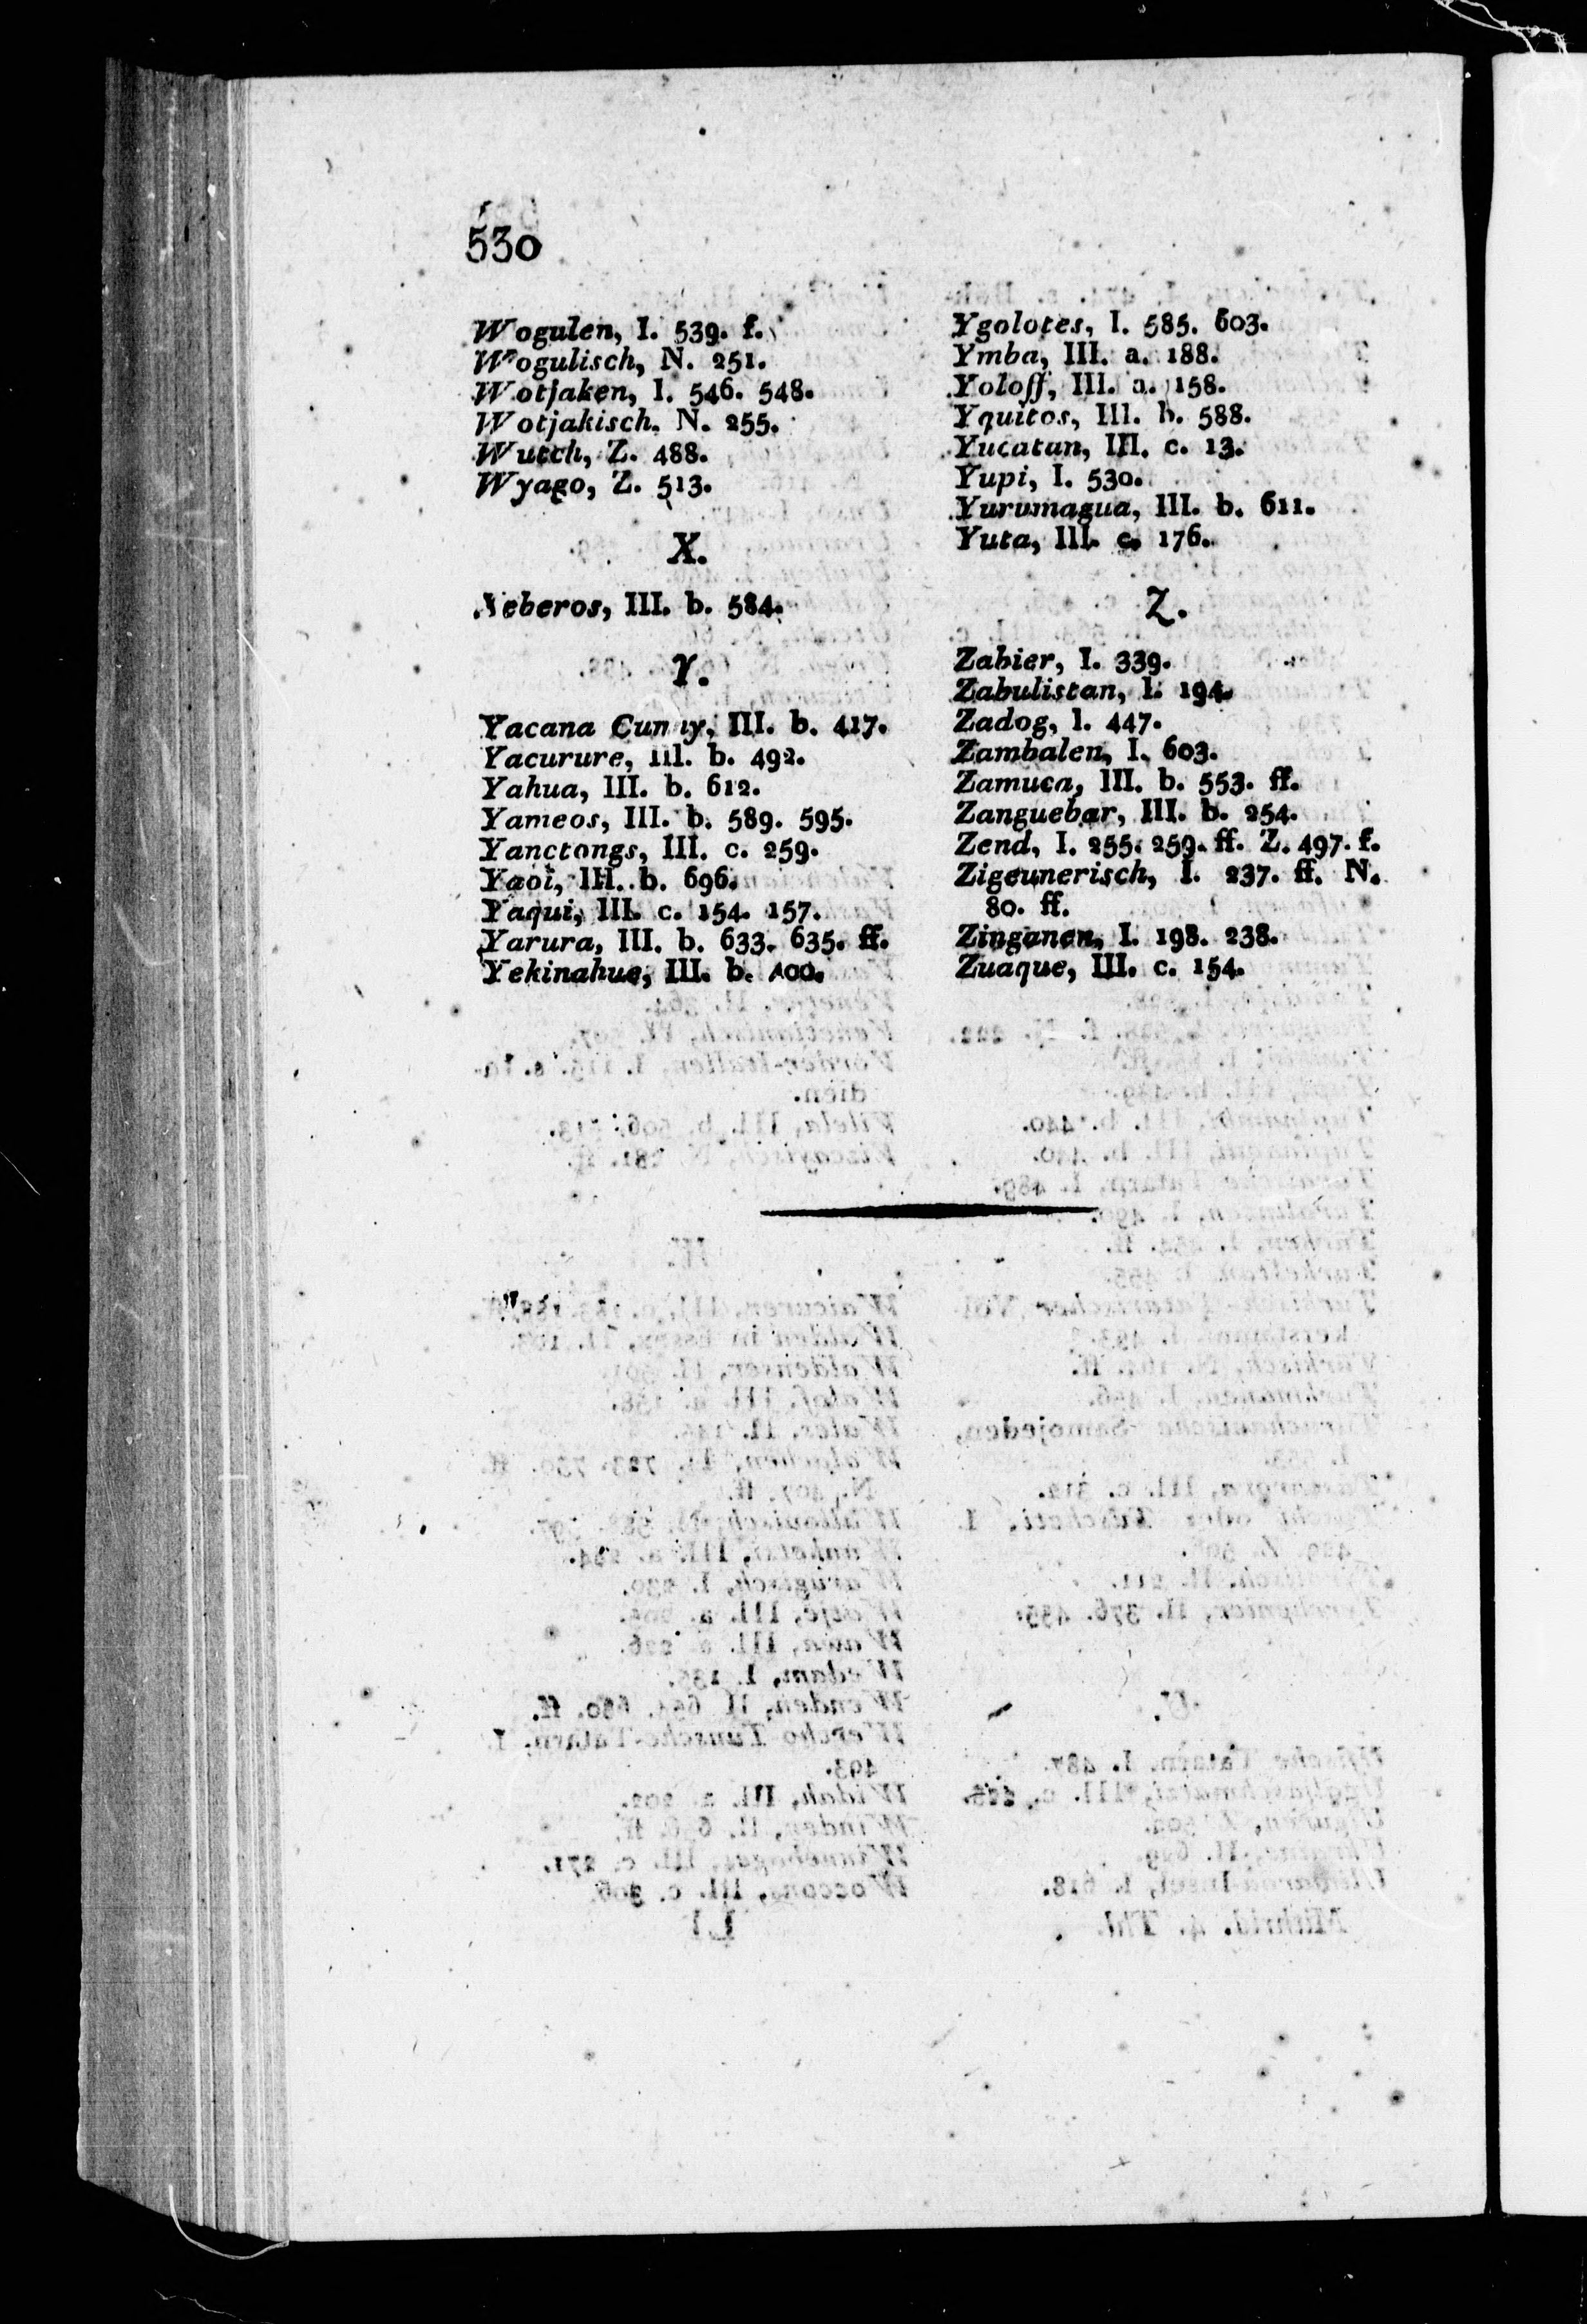 530
Wogulen, I. 539. f.
Wogulisch, N. 251.
Wotjaken, I. 546. 548.
Wotjakisch, N. 255.
Wutch, Z. 488.
Wyago, Z. 513.
X.
Xeberos, III. b. 584.
Y.
Yacana III. b. 417.
Yacurure, III. b. 492.
Yahua, III. b. 612.
Yameos, III. b. 589. 595.
Yanctongs, III. c. 259.
Yaoi, III. b. 696.
Yaqui, III. c. 154. 157.
Yarura, III. b. 633. 635. ff.
Yekinahue, III. b.
Ygolotes, I. 585. 603.
Ymba, III. a. 188.
Yoloff, III. a. 158.
Yquitos, III. b. 588.
Yucatan, III. c. 13.
Yupi, I. 530.
Yurumagua, III. b. 611.
Yuta, III. c. 176.
Z.
Zabier, I. 339.
Zabulistan, I. 194.
Zadog, I. 447.
Zambalen, I. 603.
Zamuca, III. b. 553. ff.
Zanguebar, III. b. 254.
Zend, I. 255. 259. ff. Z. 497. f.
Zigeunerisch, I. 237. ff. N.
80. ff.
Zinganen, I. 198. 238.
Zuaque, III. c. 154.